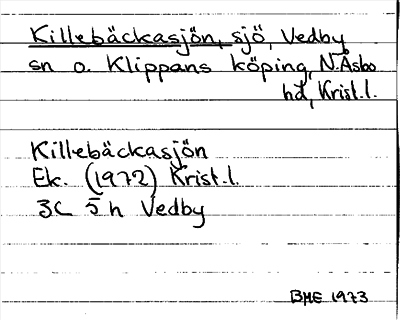 Killebäckasjön, sjö, Vedby
sn o. Klippans köping, N.Åsbo
hd, Krist.l.
Killebäckasjön
Ek. (1972) Krist.l.
3C 5h Vedby
BME 1973